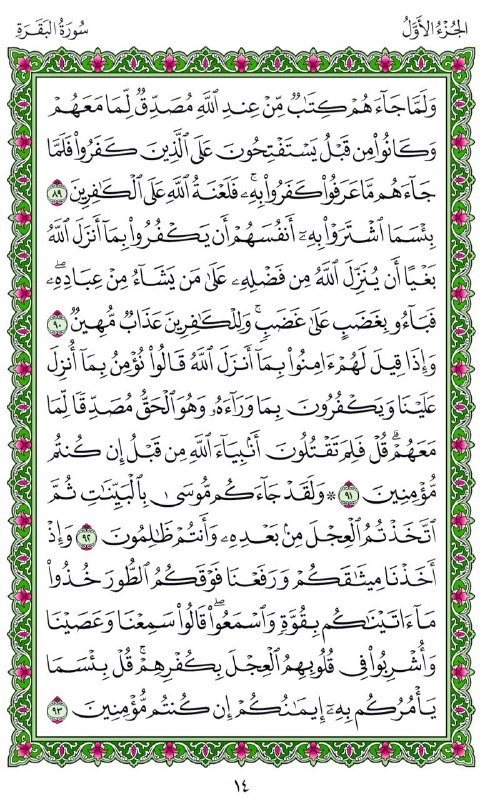 الجُزْءُ الأَوَّلُ
سُورَةُ البَقَرَةِ
وَلَمَّا جَآءَهُمْ كِتَـٰبٌ مِّنْ عِندِ ٱللَّهِ مُصَدِّقٌ لِّمَا مَعَهُمْ
وَكَانُوا۟ مِن قَبْلُ يَسْتَفْتِحُونَ عَلَى ٱلَّذِينَ كَفَرُوا۟ فَلَمَّا
جَآءَهُم مَّا عَرَفُوا۟ كَفَرُوا۟ بِهِۦۚ فَلَعْنَةُ ٱللَّهِ عَلَى ٱلْكَـٰفِرِينَ ٨٩
بِئْسَمَا ٱشْتَرَوْا۟ بِهِۦٓ أَنفُسَهُمْ أَن يَكْفُرُوا۟ بِمَآ أَنزَلَ ٱللَّهُ
بَغْيًا أَن يُنَزِّلَ ٱللَّهُ مِن فَضْلِهِۦ عَلَىٰ مَن يَشَآءُ مِنْ عِبَادِهِۦۖ
فَبَآءُو بِغَضَبٍ عَلَىٰ غَضَبٍۚ وَلِلْكَـٰفِرِينَ عَذَابٌ مُّهِينٌ ٩٠
وَإِذَا قِيلَ لَهُمْ ءَامِنُوا۟ بِمَآ أَنزَلَ ٱللَّهُ قَالُوا۟ نُؤْمِنُ بِمَآ أُنزِلَ
عَلَيْنَا وَيَكْفُرُونَ بِمَا وَرَآءَهُۥ وَهُوَ ٱلْحَقُّ مُصَدِّقًا لِّمَا
مَعَهُمْۗ قُلْ فَلِمَ تَقْتُلُونَ أَنۢبِيَآءَ ٱللَّهِ مِن قَبْلُ إِن كُنتُم
مُّؤْمِنِينَ ٩١ ۞ وَلَقَدْ جَآءَكُم مُّوسَىٰ بِٱلْبَيِّنَـٰتِ ثُمَّ
ٱتَّخَذْتُمُ ٱلْعِجْلَ مِنۢ بَعْدِهِۦ وَأَنتُمْ ظَـٰلِمُونَ ٩٢ وَإِذْ
أَخَذْنَا مِيثَـٰقَكُمْ وَرَفَعْنَا فَوْقَكُمُ ٱلطُّورَ خُذُوا۟
مَآ ءَاتَيْنَـٰكُم بِقُوَّةٍ وَٱسْمَعُوا۟ۖ قَالُوا۟ سَمِعْنَا وَعَصَيْنَا
وَأُشْرِبُوا۟ فِى قُلُوبِهِمُ ٱلْعِجْلَ بِكُفْرِهِمْۚ قُلْ بِئْسَمَا
يَأْمُرُكُم بِهِۦٓ إِيمَـٰنُكُمْ إِن كُنتُم مُّؤْمِنِينَ ٩٣
١٤